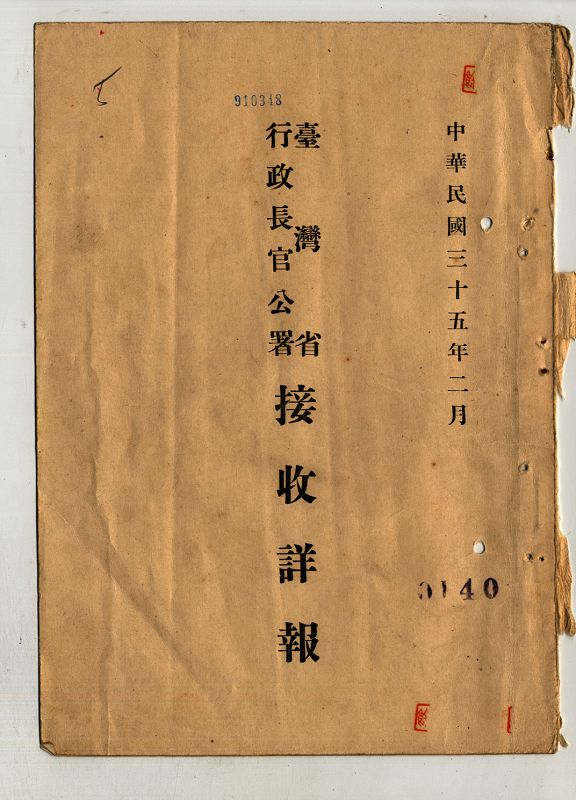 中華民國三十五年二月
臺灣省
行政長官公署
接收詳報
910348
0140